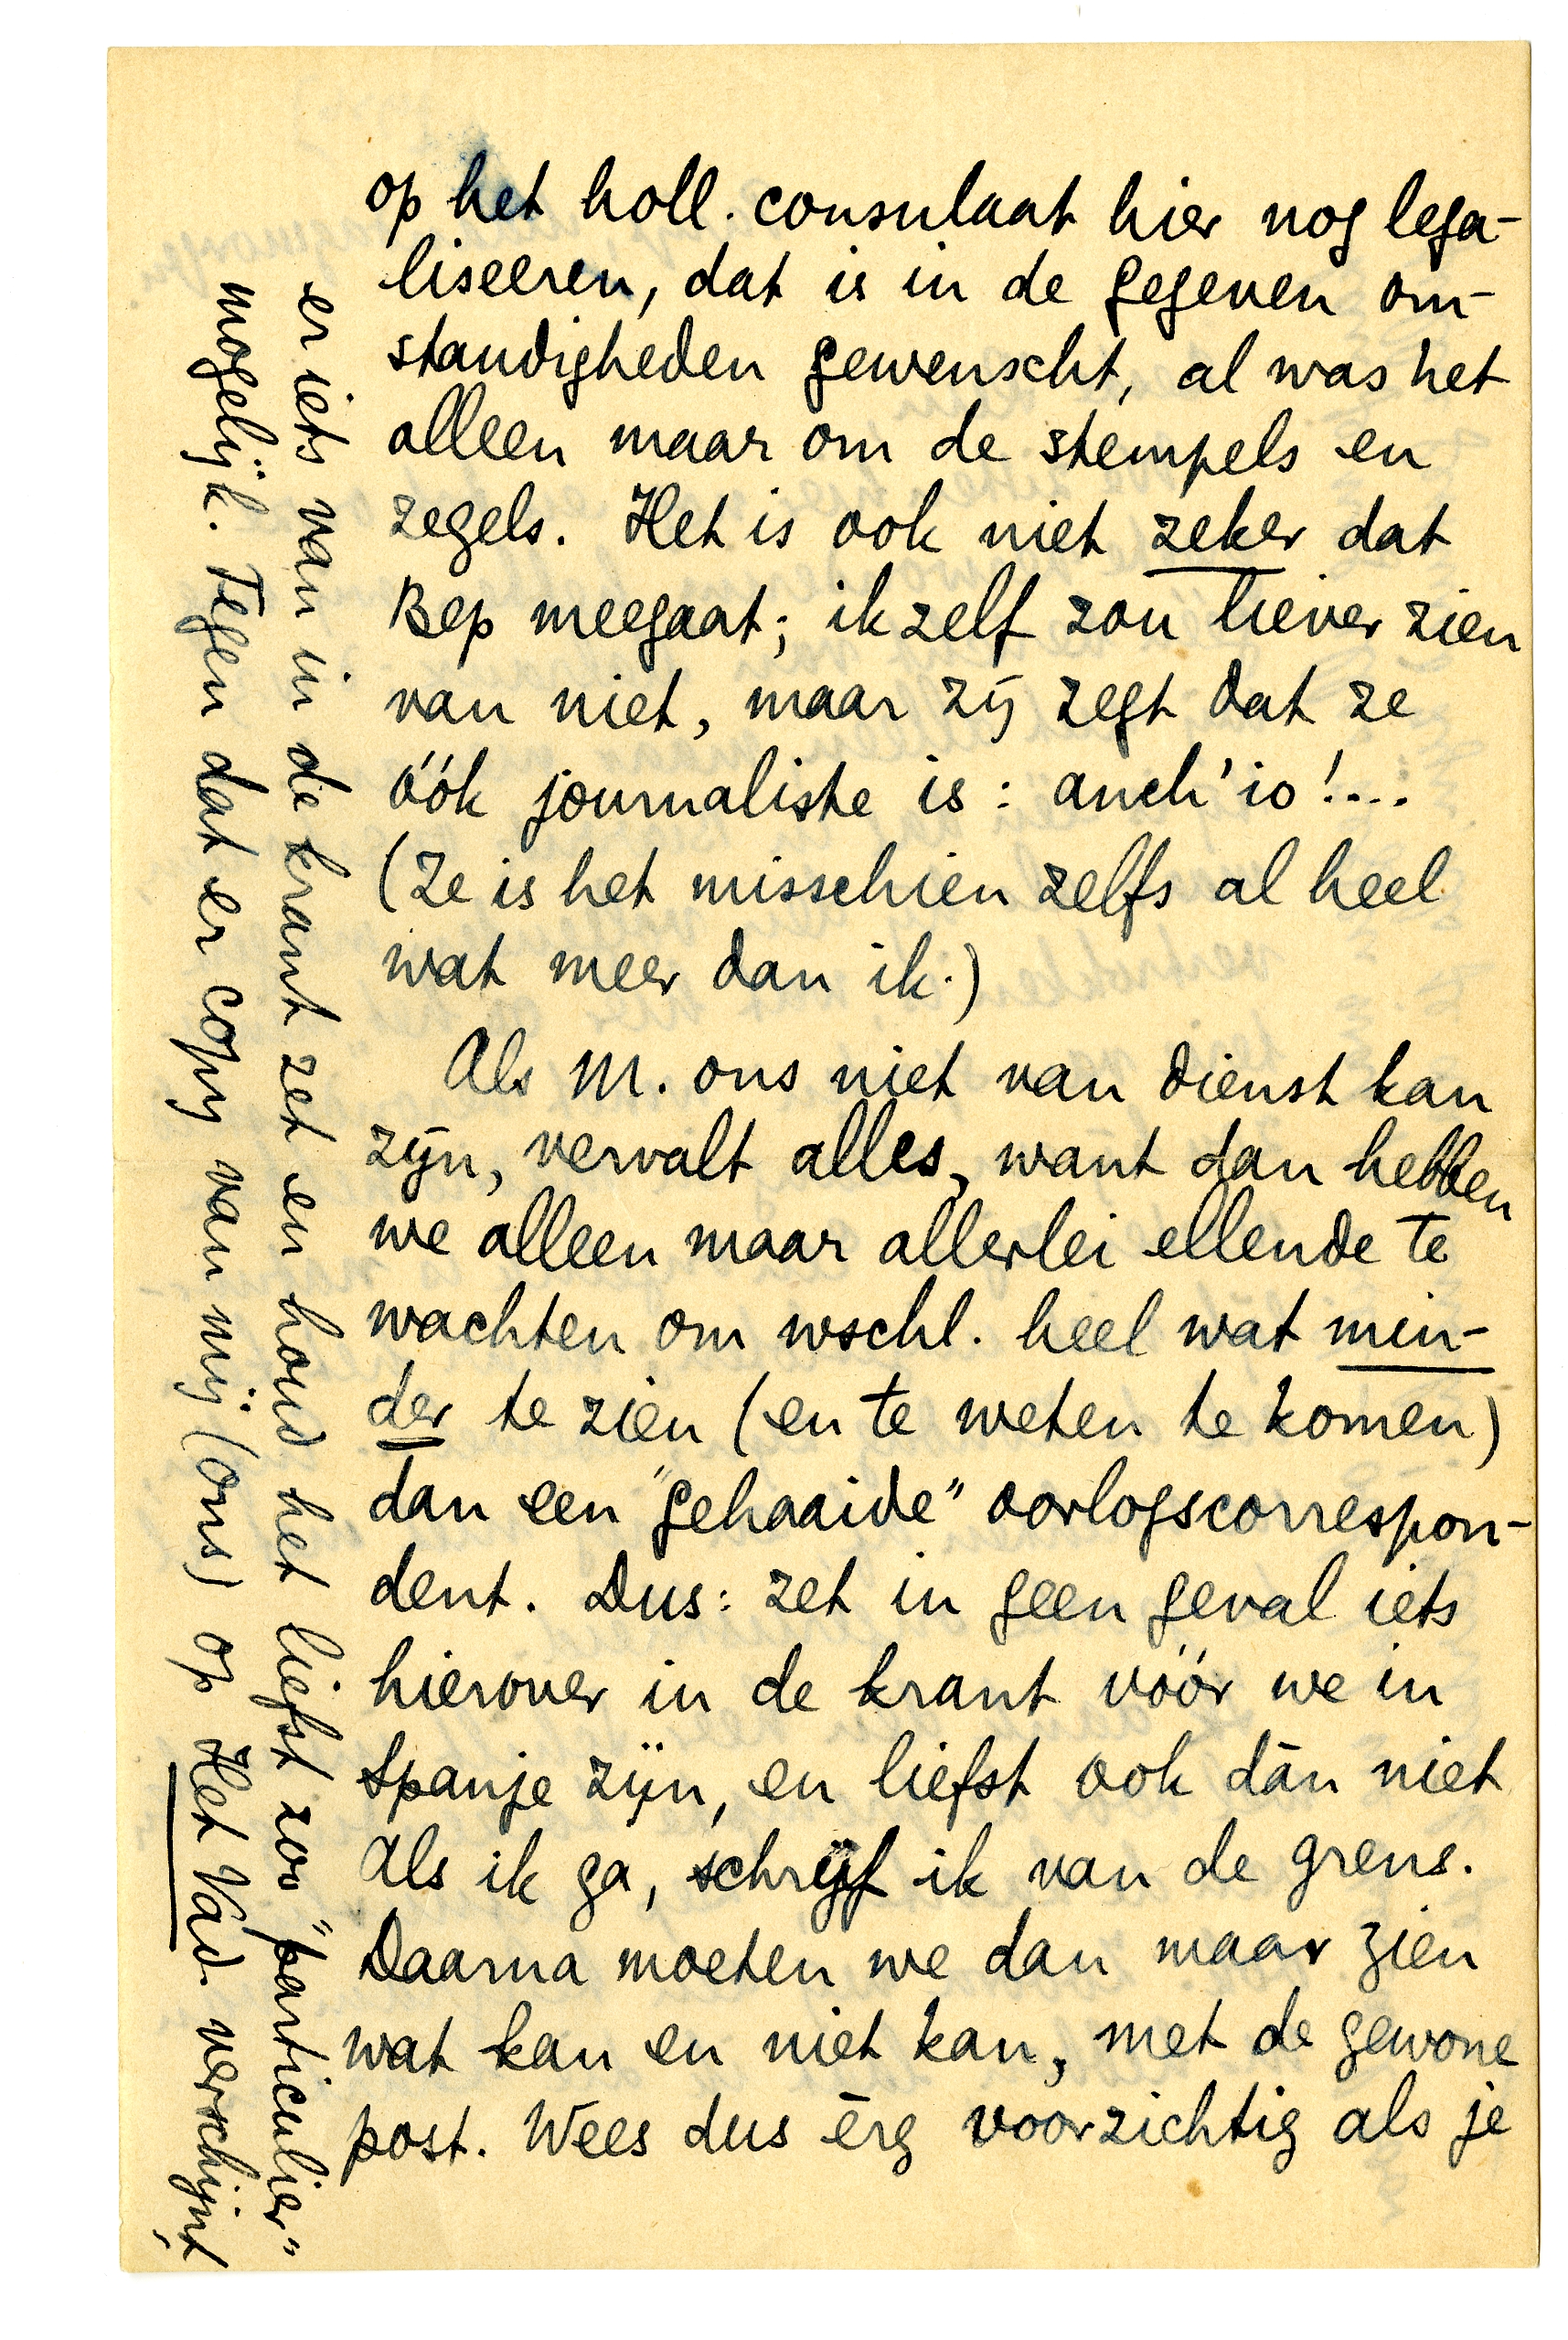 op het holl. consulaat hier nog lega-
liseeren, dat is in de gegeven om-
standigheden gewenscht, al was het
alleen maar om de stempels en
zegels. Het is ook niet zeker dat
Bep meegaat; ik zelf zou liever zien
van niet, maar zij zegt dat ze
óók journaliste is: anch' io!....
(Ze is het misschien zelfs al heel
wat meer dan ik.)
Als M. ons niet van dienst kan
zijn, vervalt alles, want dan hebben
we alleen maar allerlei ellende te
wachten om wschl. heel wat min-
der te zien (en te weten te komen)
dan een "gehaaide" oorlogscorrespon-
dent. Dus: zet in geen geval iets
hierover in de krant vóór we in
Spanje zijn, en liefst ook dàn niet
Als ik ga, schrijf ik van de grens.
Daarna moeten we dan maar zien
wat kan en niet kan, met de gewone
post. Wees dus èrg voorzichtig als je
er iets van in de krant zet en houd het liefst zoo "particulier"
mogelijk. Tegen dat er copy van mij (ons) op Het Vad. verschijnt,